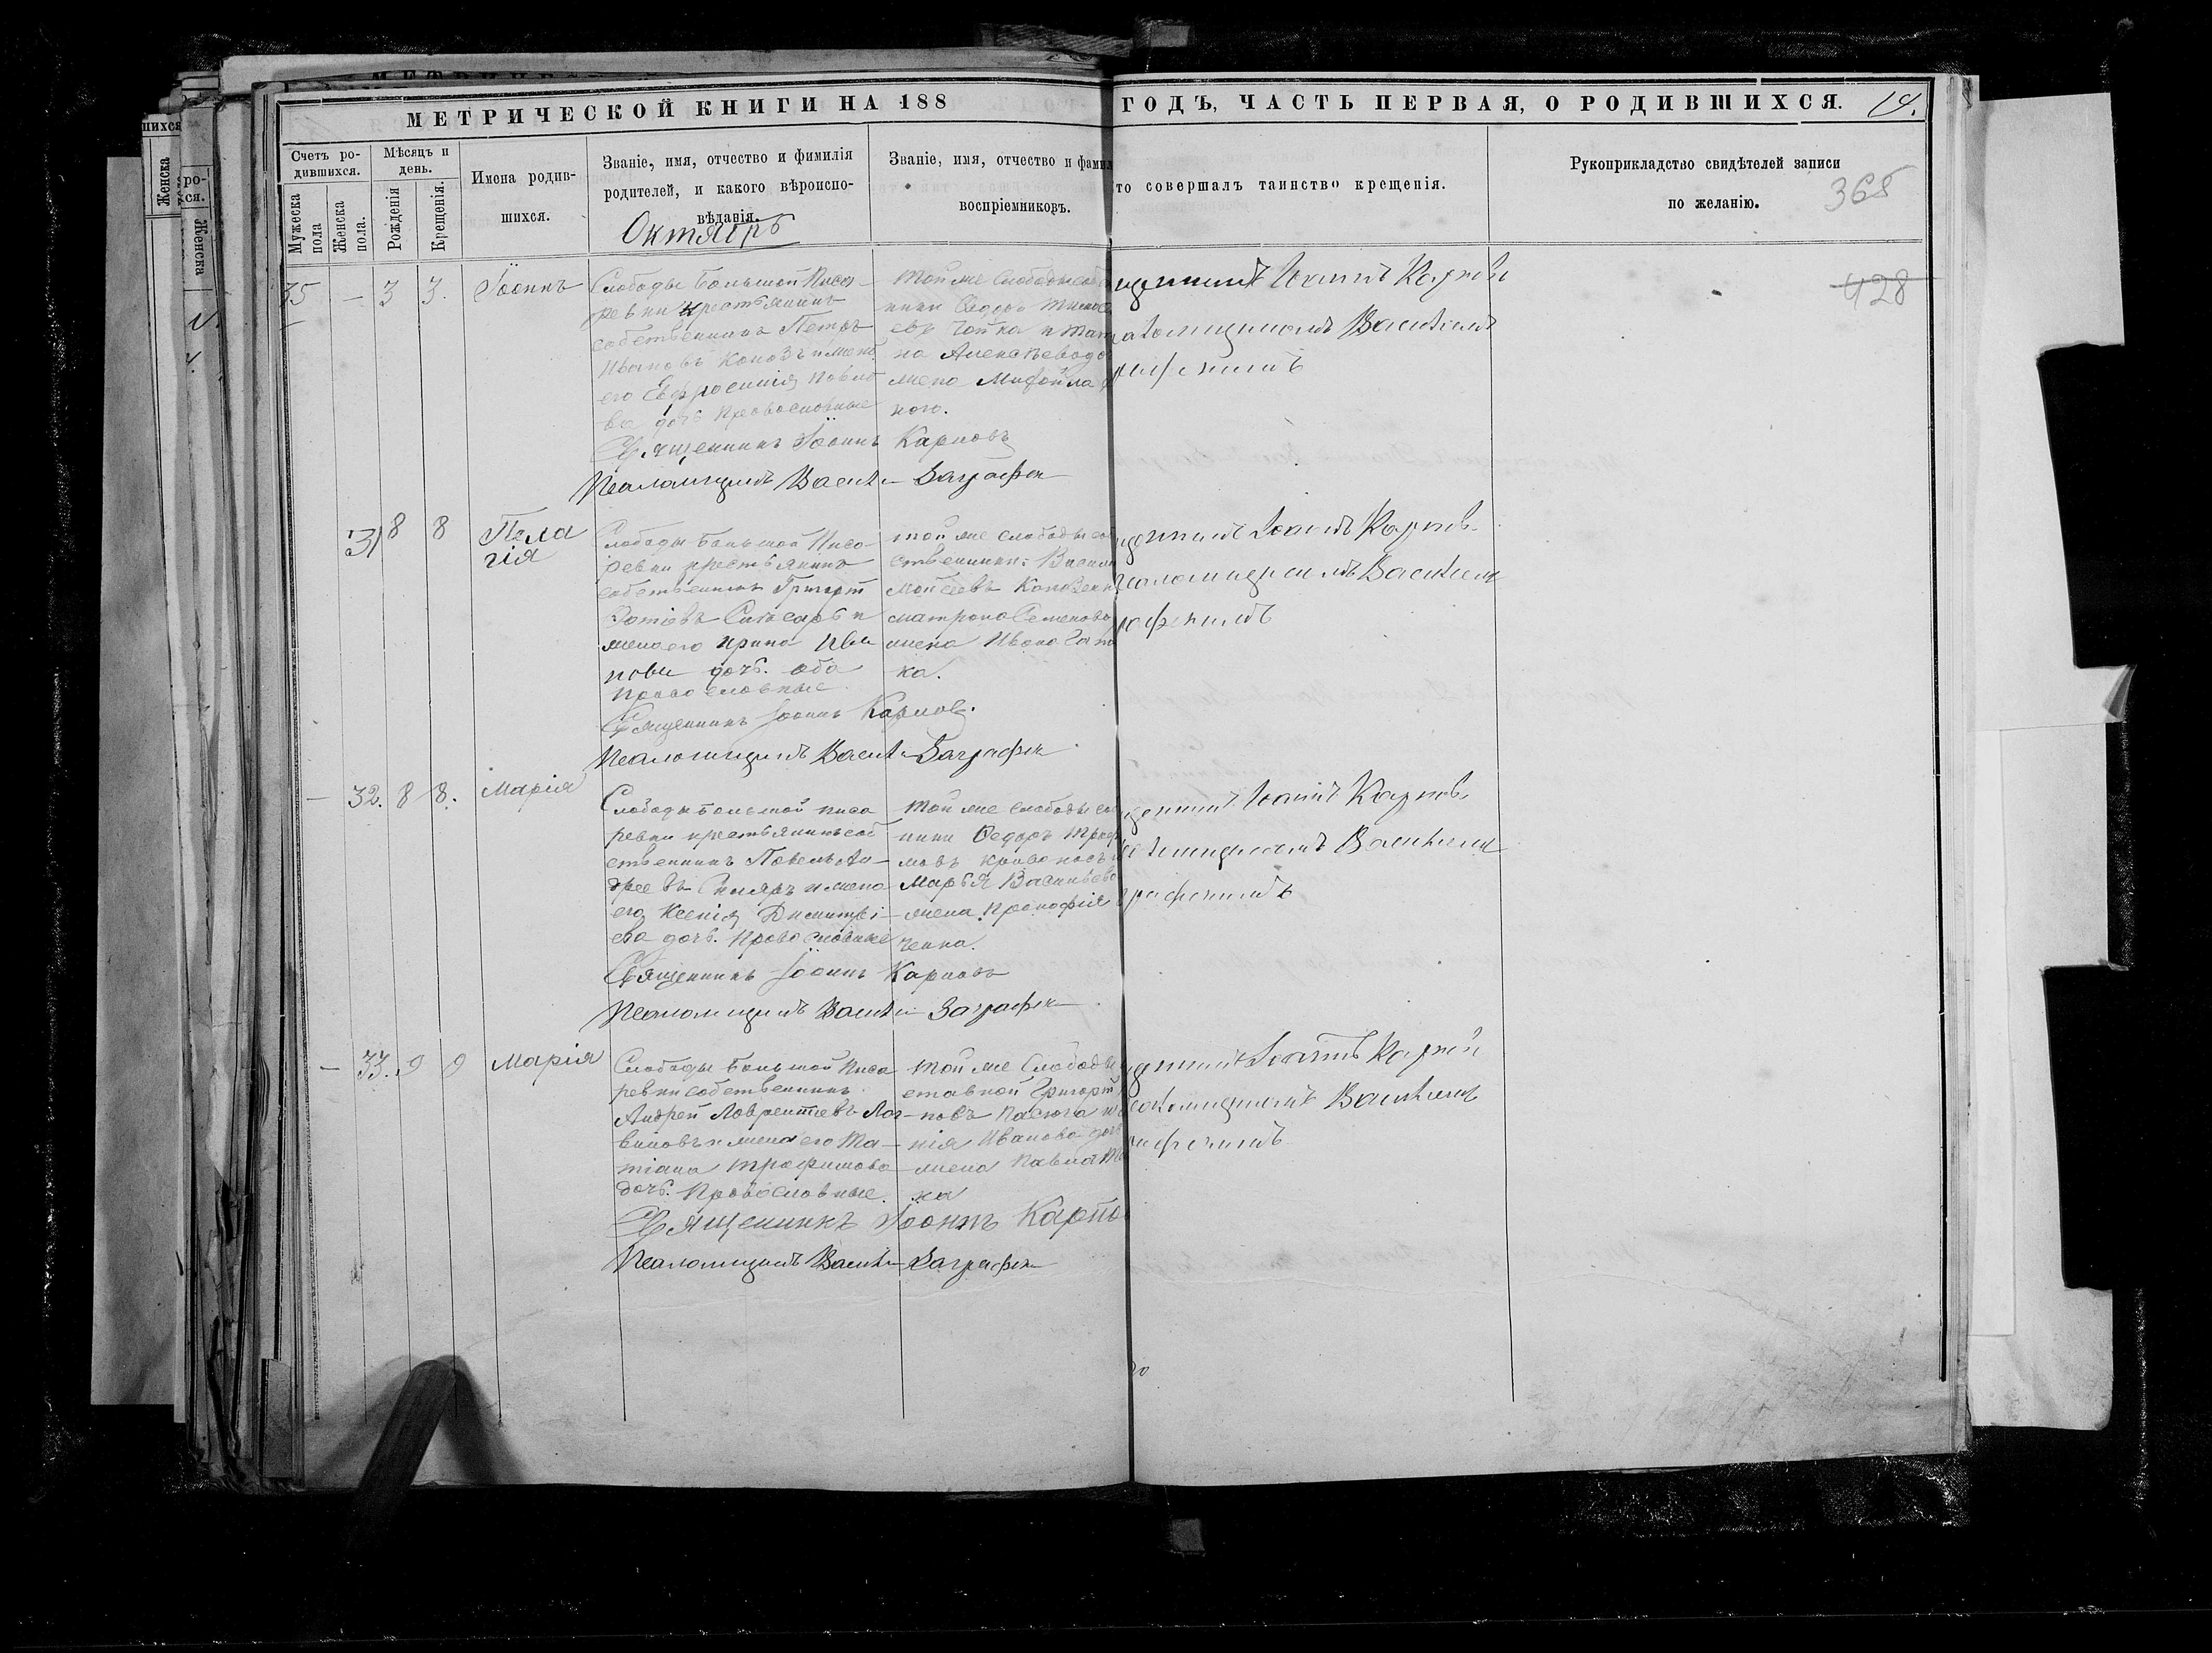 МЕТРИЧЕСКОЙ КНИГИ НА 188
ГОДЪ, ЧАСТЬ ПЕРВАЯ, О РОДИВШИХСЯ.
Счетъ ро-
дившихся.
Мужеска
пола
Женска
пола.
Мѣсяцъ и
день.
Рожденія
Крещенія.
Имена родив-
шихся.
Званіе, имя, отчество и фимилія
родителей, и какого вѣроиспо-
вѣданія.
Октябрь
Званіе, имя, отчество и фамил
воспріемниковъ.
то совершалъ таинство крещенія.
Рукоприкладство свидѣтелей записи
по желанію.
368
428
35 – 3 3. Іоаннъ
Слободы Большой Писа-
ревки крестьянинъ
собственникъ Петръ
Ивановъ Коновъ и жена
его Евфросинія Павло
ва дочь православные
Священникъ Іоаннъ Карповъ
Псаломщикъ Васил Заграфск
Той же слободы соб
ники Ѳедоръ
евъ Чайка и Тат
на Алексѣева до
жена Михаила
ного.
щенникъ Іоаннъ Карповъ
аломщикомъ Василіемъ
рафскимъ
31 8 8 Пела
гія
Слободы Большой Писа-
ревки крестьянинъ
собственникъ Григорій
Зотіевъ Слѣсарь и
жена его Ирина Ива
нова дочь. оба
православные
Священникъ Іоаннъ Карповъ.
Псаломщикъ Васил Заграфск
той же слободы соб
ственники: Васил
Мойсеевъ
Матрона Семенова
жена Ивана
ка.
щенникъ Іоаннъ Карповъ.
саломщикомъ Василіем
рафскимъ
– 32. 8 8. Марія
Слободы Большой Писа
ревки крестьянинъ соб
ственникъ Павелъ Ан-
дреевъ Скляръ и жена
его Ксенія Димитрі-
ева дочь. православные
Священникъ Іоаннъ Карповъ
Псаломщикъ Васил Заграфск
Той же слободы со
ники Ѳедоръ Троф
мовъ Кривоносъ
Марья Васильева
жена Прокофія
ченка.
щенникъ Іоаннъ Карповъ
аломщикомъ Василіем
графскимъ
– 33. 9 9 Марія
Слободы Большой Писа
ревки собственникъ
Андрей Лаврентіевъ Лог
виновъ и жена его Та-
тіана Трофимова
дочь. Православные.
Священникъ Іоаннъ Карпо
Псаломщикъ Васил Заграфск
Той же Слободы
ставной Григорій
новъ Пасюга и
нія Иванова доч
жена Павла
ка
щенникъ Іоаннъ Карповъ
саломщикомъ Василіемъ
рафскимъ